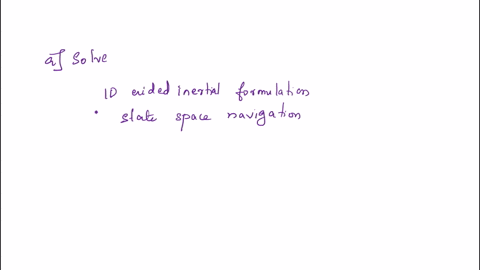 a] Solve
1D aided inertial formulation
state space navigation